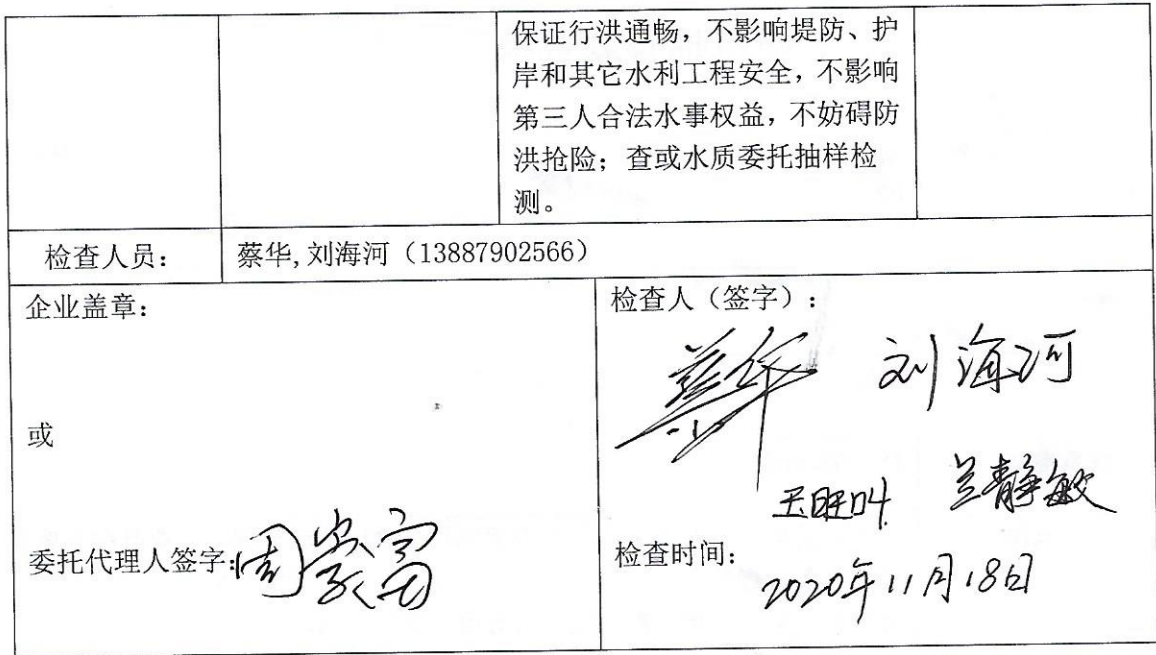 保证行洪通畅，不影响堤防、护
岸和其它水利工程安全，不影响
第三人合法水事权益，不妨碍防
洪抢险；查或水质委托抽样检
测。
检查人员：
蔡华,刘海河（13887902566）
企业盖章：
或
委托代理人签字：周崇富
检查人（签字）：
蔡华 刘海河
玉旺叫 兰静敏
检查时间：
2020年11月18日